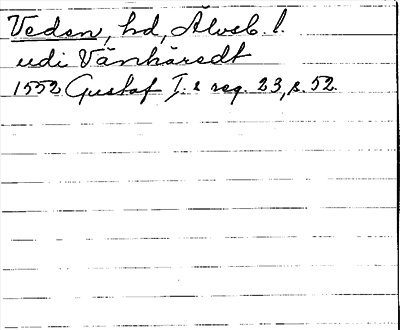 Veden, hd, Älvsb. l.
udi Vänhäredt
1552 Gustaf I:s reg. 23, s. 52.